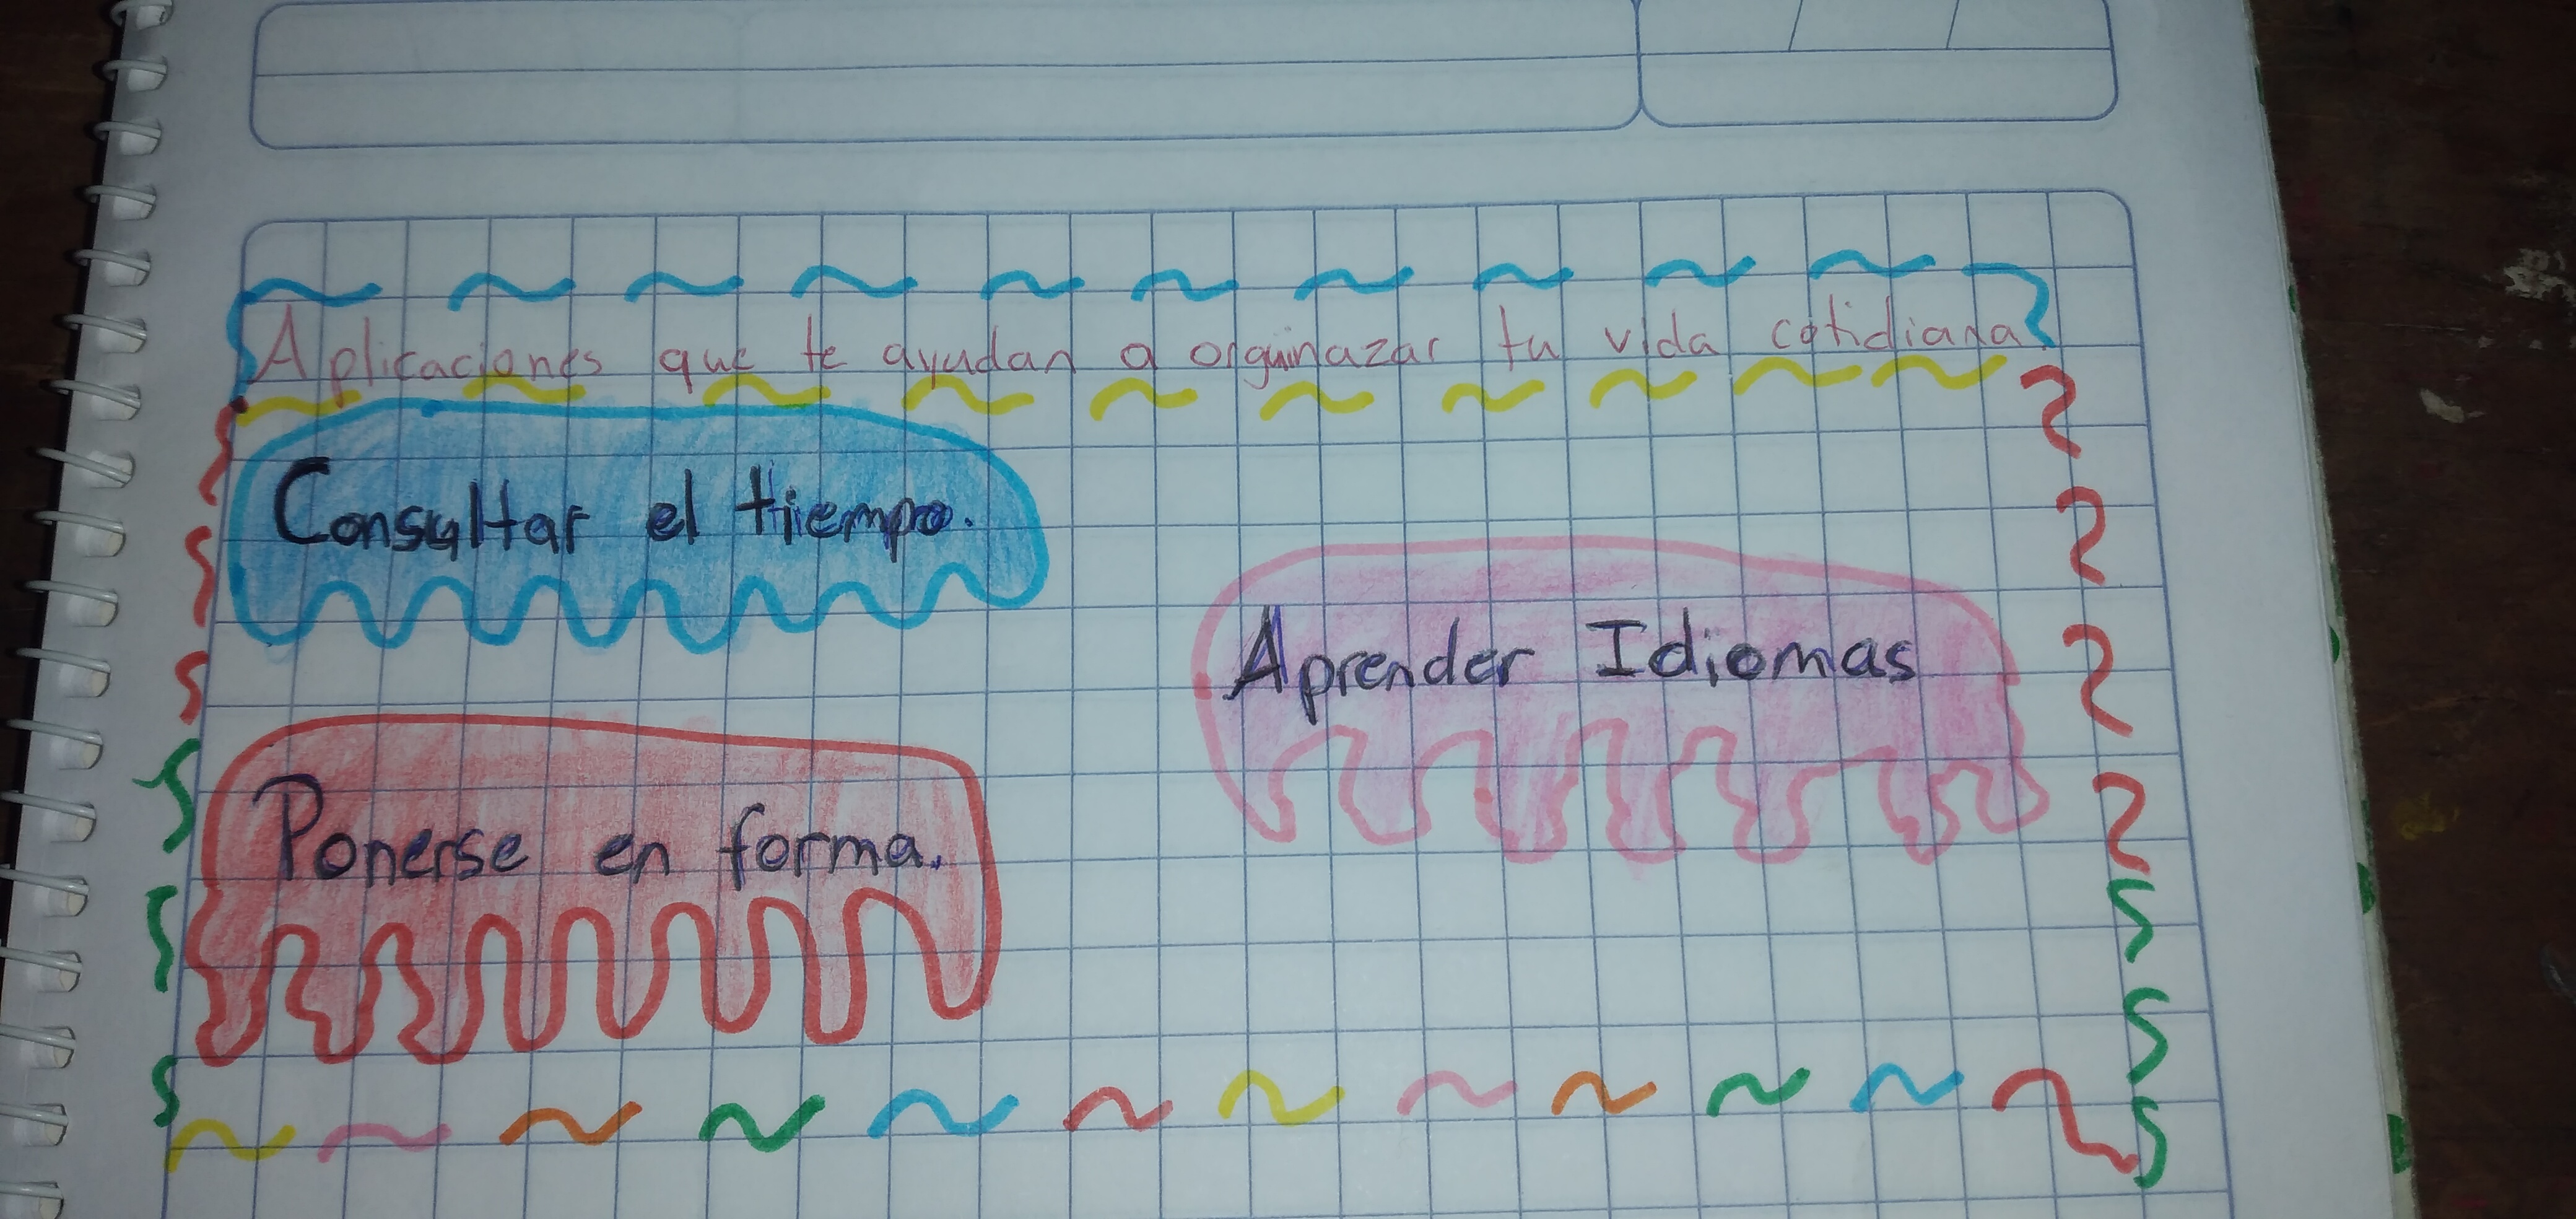 Aplicaciones que te ayudan a orguinazar tu vida cotidiana
Consultar el tiempo.
Aprender Idiomas
Ponerse en forma.